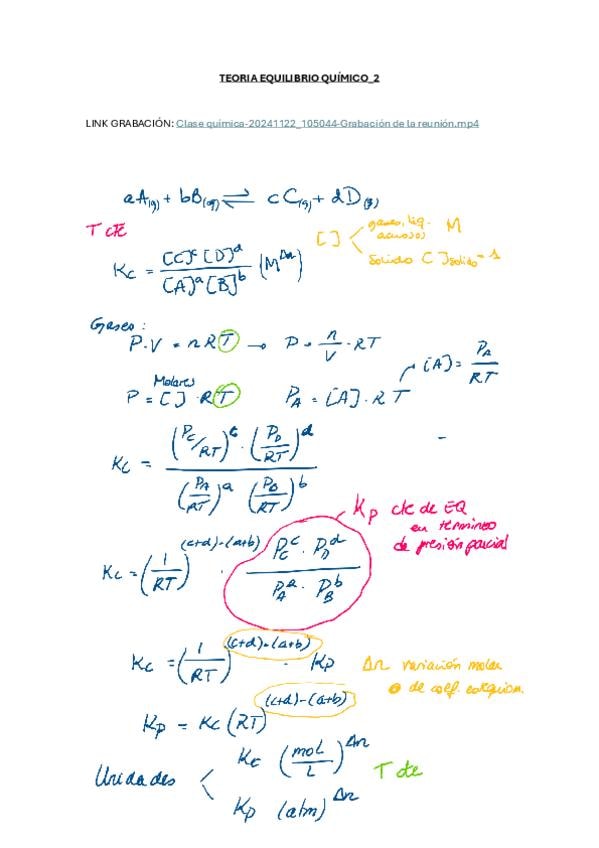 TEORIA EQUILIBRIO QUÍMICO_2
LINK GRABACIÓN: Clase química-20241122_105044-Grabación de la reunión.mp4
aA(g) + bB(g) ⇌ cC(g) + dD(g)
T cte
Kc = [C]^c [D]^d / [A]^a [B]^b (M^Δn)
[ ] < gases, líq. acuosos M
sólido [ ]sólido = 1
Gases:
P·V = nRT → P = n/V · RT
Molares
P = [ ] · RT P_A = [A]·RT → [A] = P_A/RT
Kc = (P_C/RT)^c · (P_D/RT)^d / (P_A/RT)^a (P_B/RT)^b
Kp cte de EQ
en términos
de presión parcial
Kc = (1/RT)^(c+d)-(a+b) · P_C^c · P_D^d / P_A^a · P_B^b
Kc = (1/RT)^(c+d)-(a+b) · Kp
Δn variación molar
o de coef. estequiom.
Kp = Kc (RT)^(c+d)-(a+b)
Unidades < Kc (mol/L)^Δn
Kp (atm)^Δn
T cte